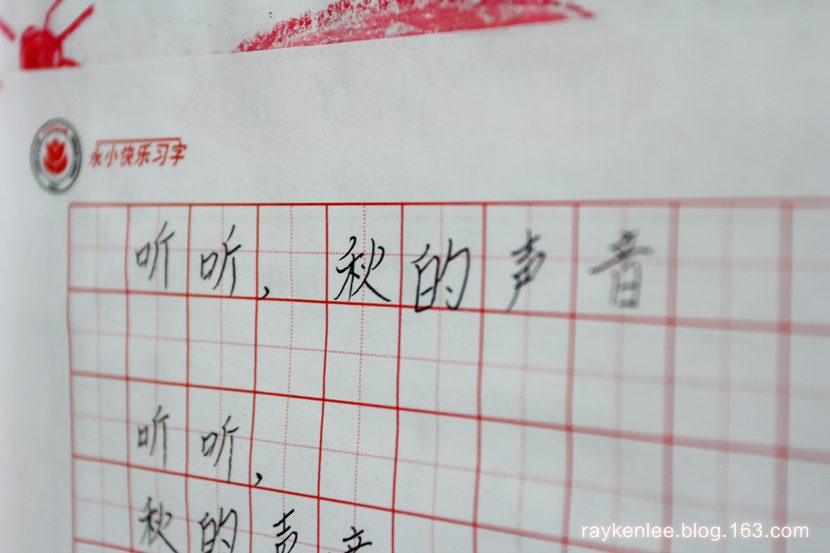 永小快乐习字
听听，秋的声音
听听，
秋的声音
raykenlee.blog.163.com